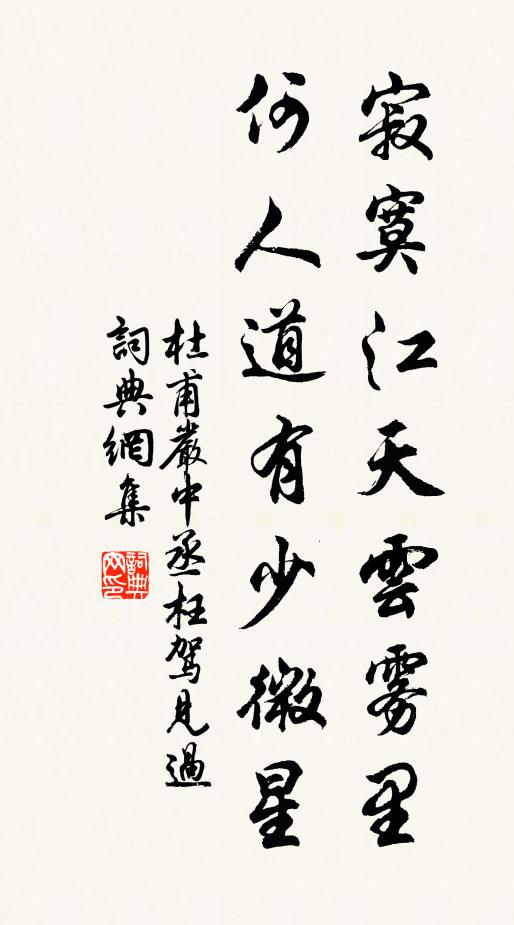 寂寞江天雲霧里
何人道有少微星
杜甫嚴中丞枉駕見過
詞典網集
詞典网印